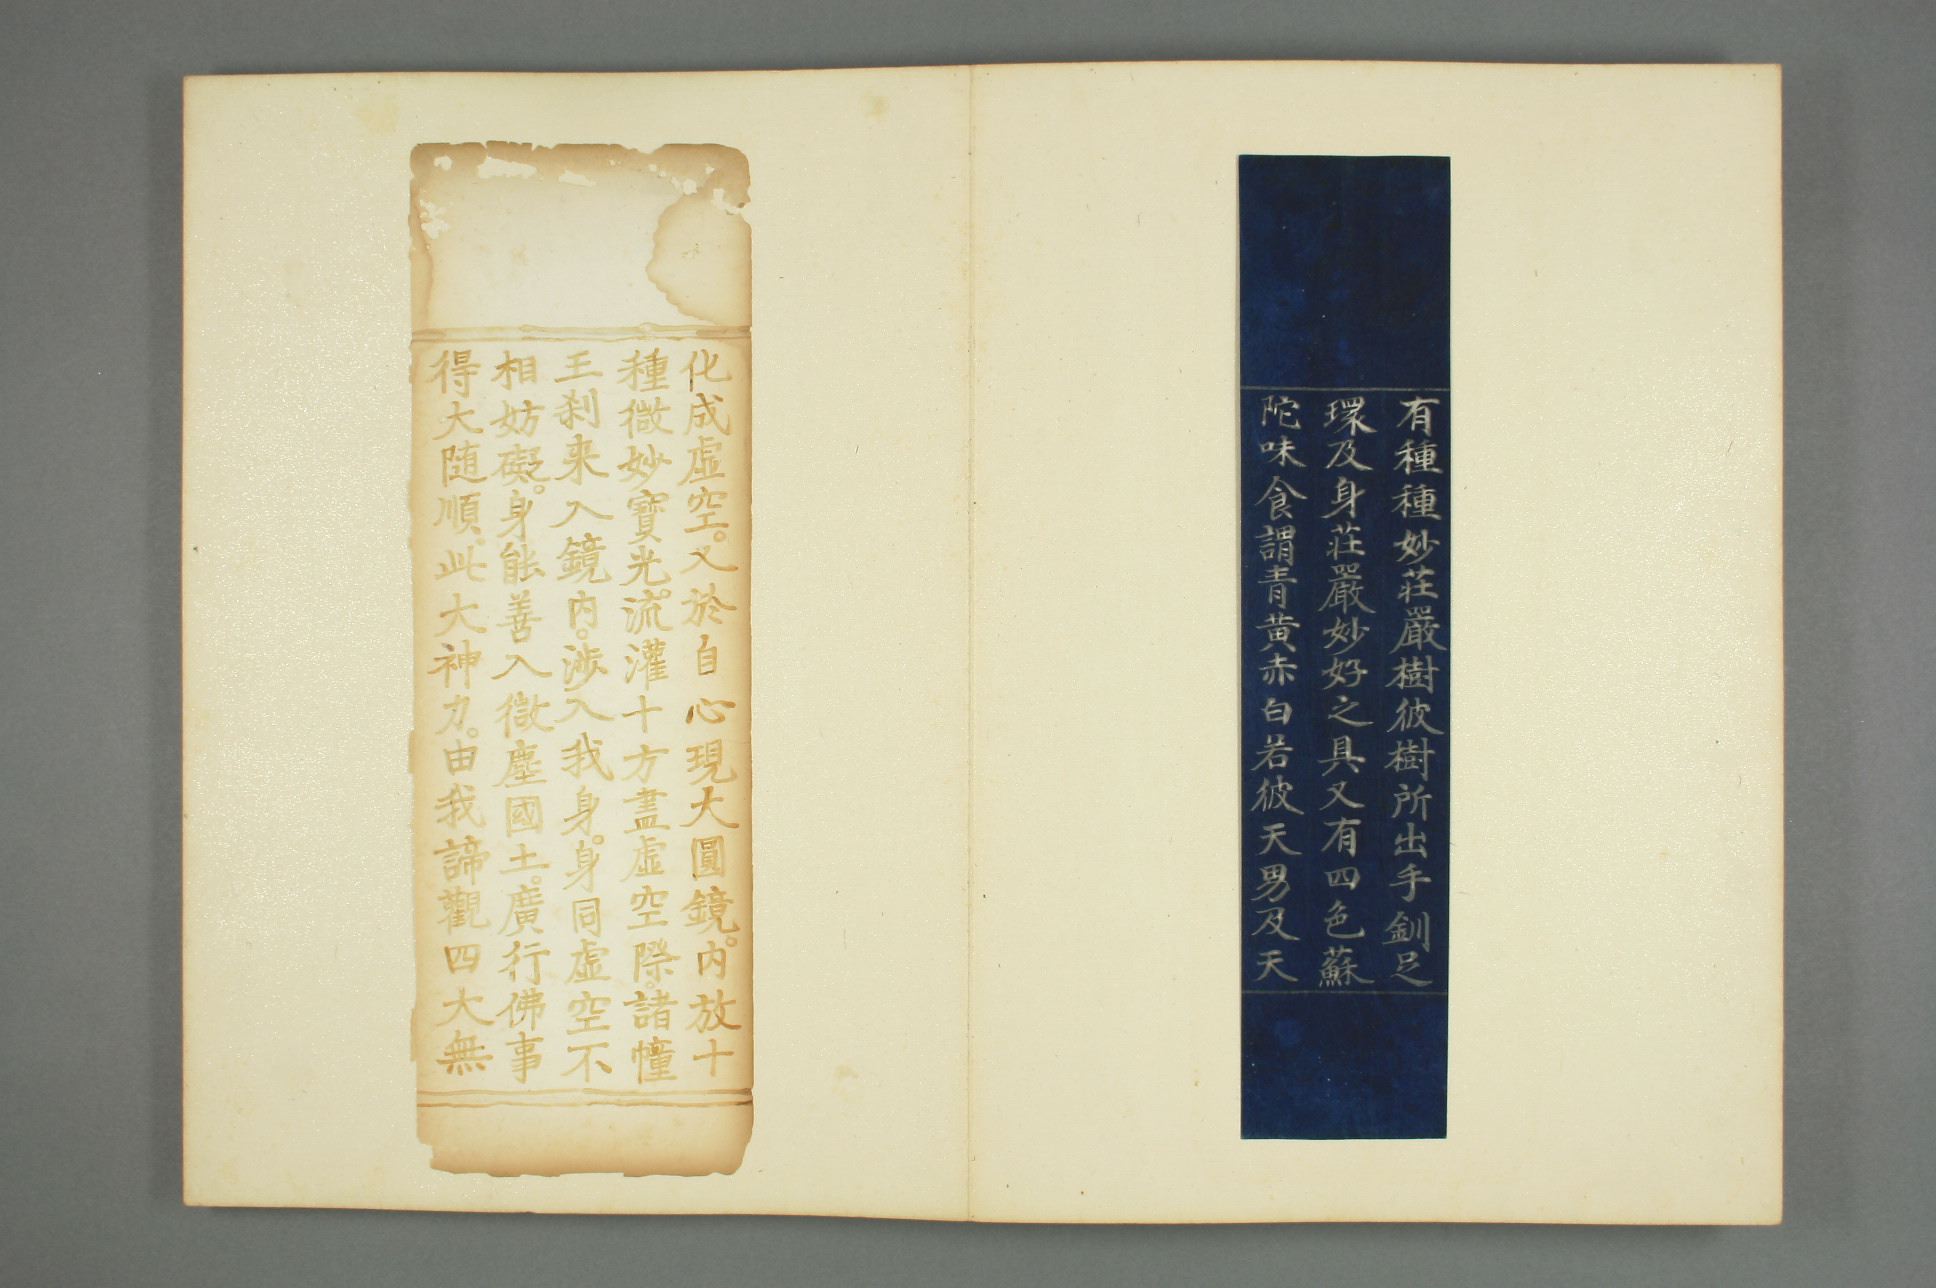 有種種妙莊嚴樹彼樹所出手釧足
環及身莊嚴妙好之具又有四色蘇
陀味食謂青黃赤白若彼天男及天
化成虛空。又於自心現大圓鏡。內放十
種微妙寶光。流灌十方盡虛空際。諸幢
王刹来入鏡內。涉入我身。身同虛空不
相妨礙。身能善入微塵國土。廣行佛事
得大随順。此大神力。由我諦觀四大無